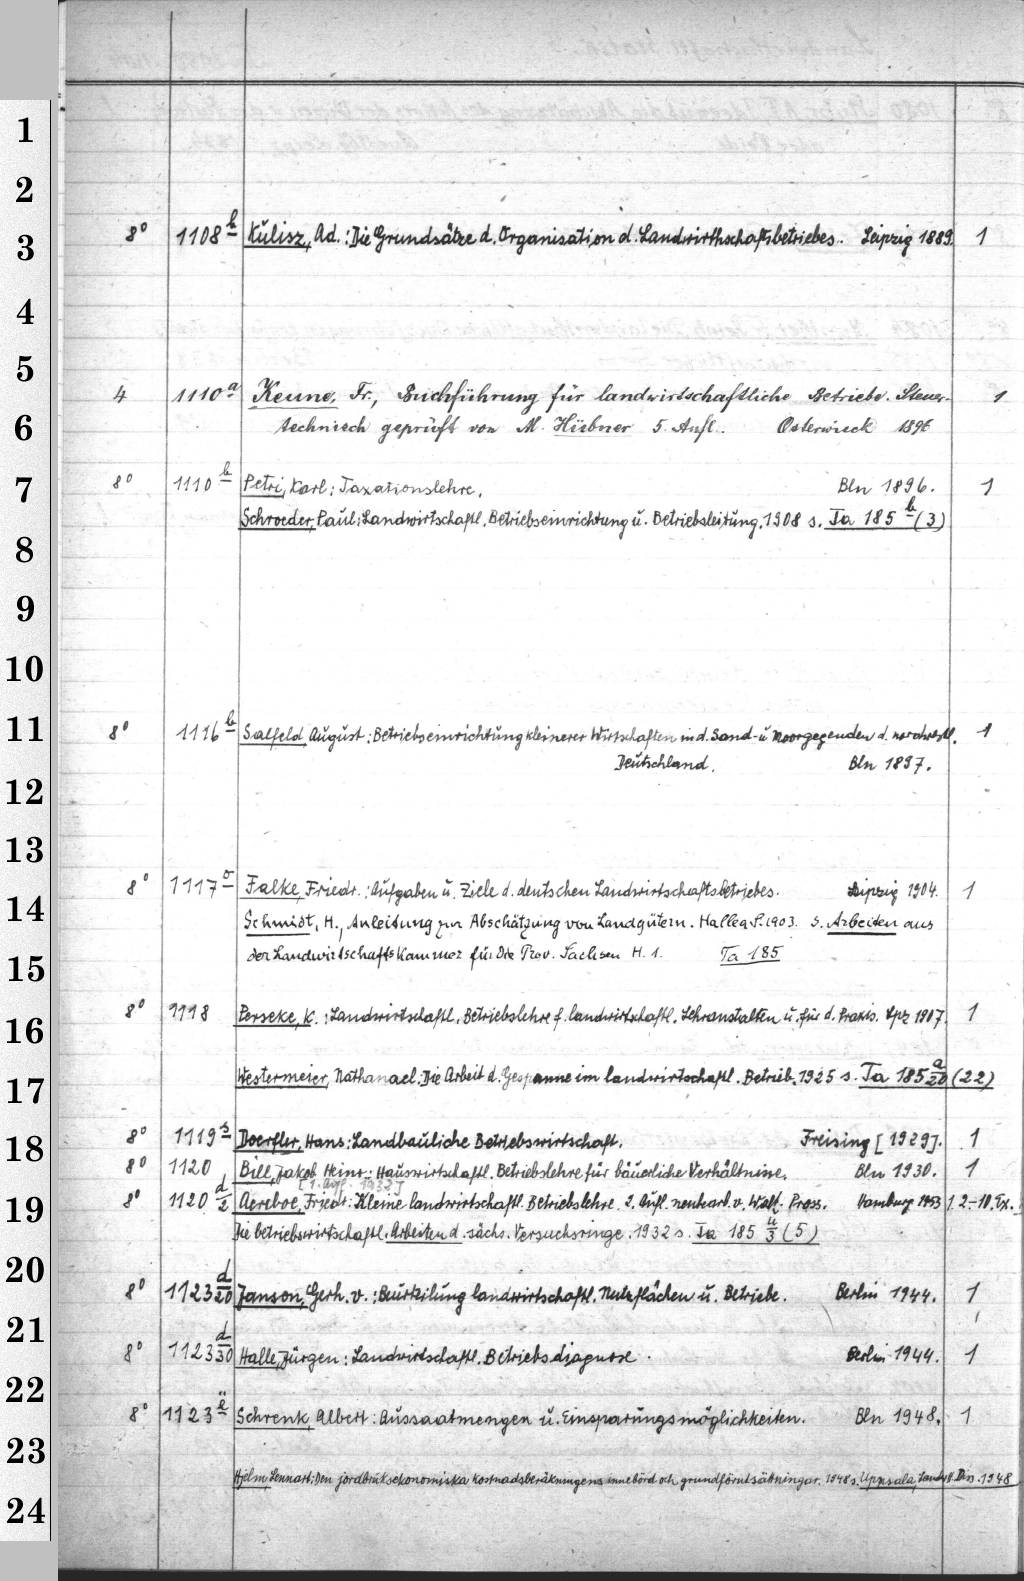 1
2
3
8° 1108 b Kulisz, Ad.: Die Grundsätze d. Organisation d. Landwirthschaftsbetriebes. Leipzig 1889. 1
4
5
4 1110 a Keune, Fr., Buchführung für landwirtschaftliche Betriebe. Steuer- 1
6
technisch geprüft von M. Hübner 5. Aufl. Osterwieck 1896
7
8° 1110 b Petri, Karl: Taxationslehre. Bln 1896. 1
Schroeder, Paul: Landwirtschaftl. Betriebseinrichtung u. Betriebsleitung. 1908 s. Ta 185 b (3)
8
9
10
11
8° 1116 b Salfeld, August: Betriebseinrichtung kleinerer Wirtschaften in d. Sand- u. Moorgegenden d. nordwestl. 1
Deutschland. Bln 1897.
12
13
8° 1117 Falke, Friedr.: Aufgaben u. Ziele d. deutschen Landwirtschaftsbetriebes. Leipzig 1904. 1
14
Schmidt, H., Anleitung zur Abschätzung von Landgütern. Halle a. S. 1903. s. Arbeiten aus
der Landwirtschaftskammer für die Prov. Sachsen H. 1. Ta 185
15
8° 1118 Perseke, K.: Landwirtschaftl. Betriebslehre f. landwirtschaftl. Lehranstalten u. für d. Praxis. Lpz 1907. 1
16
Westermeier, Nathanael: Die Arbeit d. Gespanne im landwirtschaftl. Betrieb. 1925 s. Ta 185 a/20 (22)
17
8° 1119 s Doerfler, Hans: Landbauliche Betriebswirtschaft. Freising [1929]. 1
18
8° 1120 Bill, Jakob Heinr.: Hauswirtschaftl. Betriebslehre für bäuerliche Verhältnisse. Bln 1930. 1
[1. Aufl. 1932]
19
8° 1120 d/2 Aereboe, Friedr.: Kleine landwirtschaftl. Betriebslehre. 2. Aufl. neubearb. v. Hamburg 1953 1. 2.-10. Ex.
Die betriebswirtschaftl. Arbeiten d. sächs. Versuchsringe. 1932 s. Ta 185 u/3 (5)
20
8° 1123 d/20 Janson, Gerh. v.: Beurteilung landwirtschaftl. Nutzflächen u. Betriebe. Berlin 1944. 1
21
8° 1123 d/30 Halle, Jürgen: Landwirtschaftl. Betriebsdiagnose. Berlin 1944. 1
22
8° 1123 e Schrenk, Albert: Aussaatmengen u. Einsparungsmöglichkeiten. Bln 1948. 1
23
Hjelm, Lennart: Den jordbruksekonomiska kostnadsberäkningens innebörd och grundförutsättningar. 1948 s. Uppsala, Landw. Diss. 1948
24